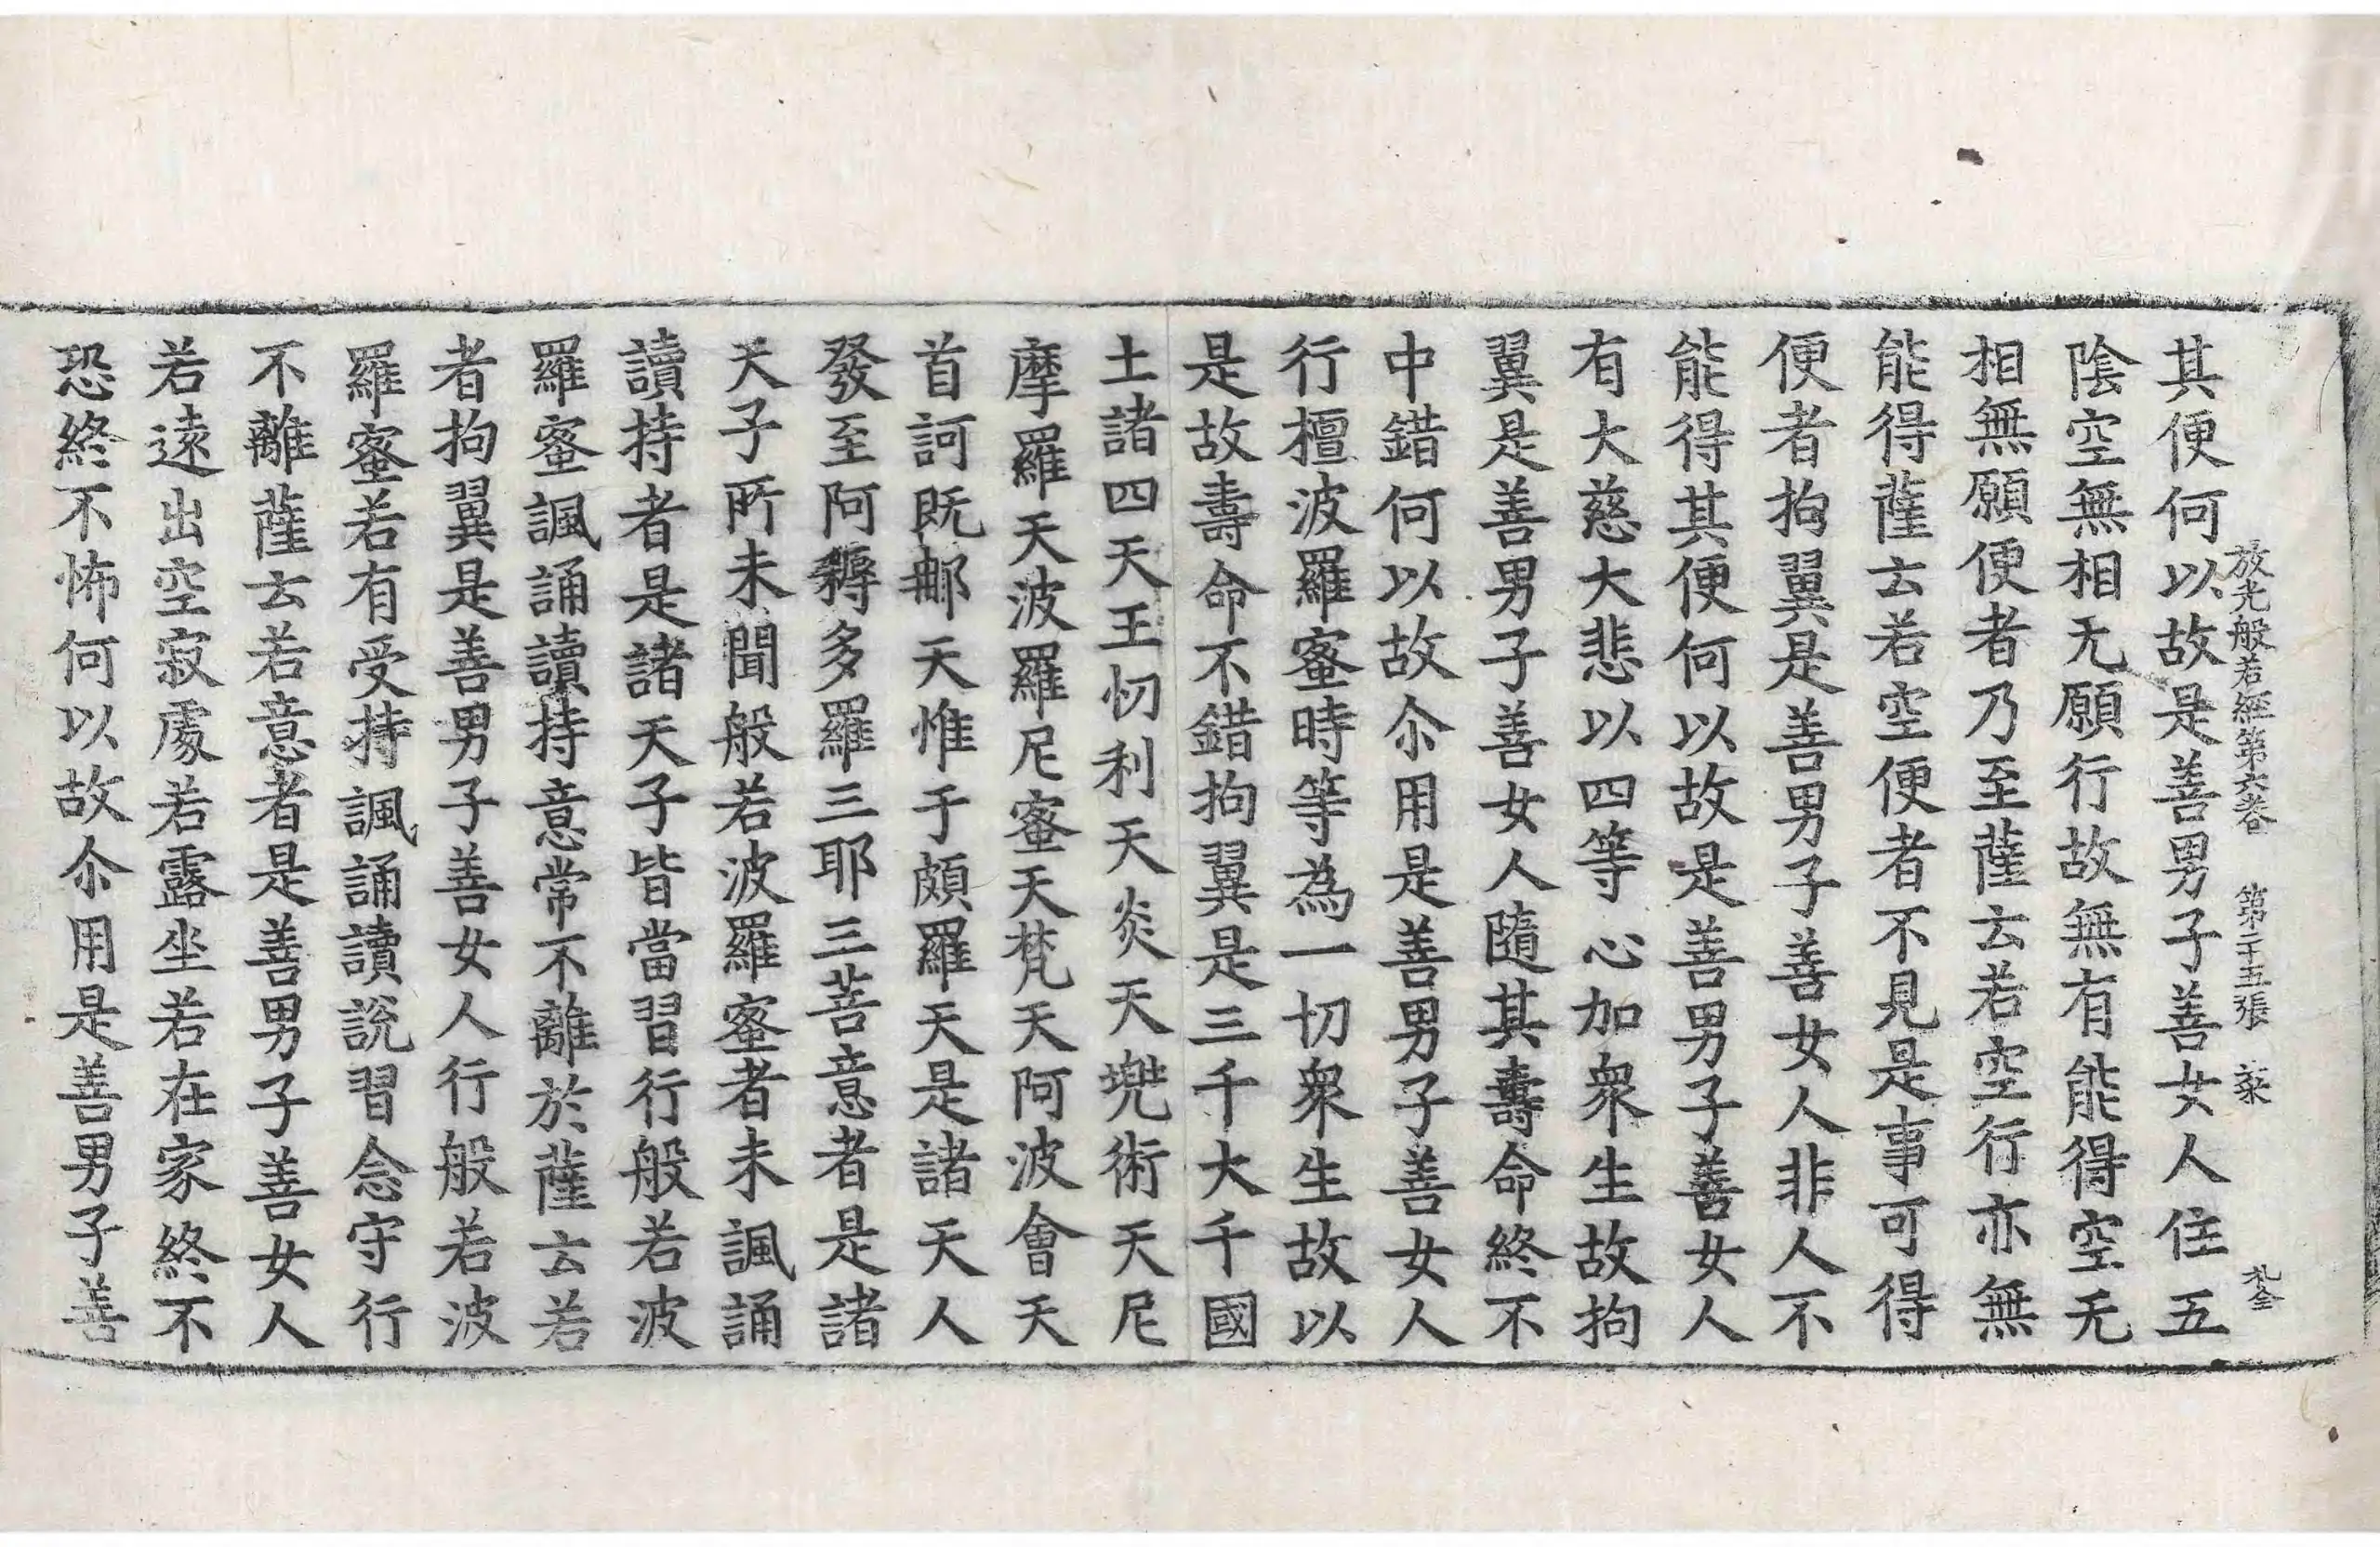 放光般若經第六卷　第二十五張　菜　札全
其便何以故是善男子善女人住五
陰空無相无願行故無有能得空无
相無願便者乃至薩云若空行亦無
能得薩云若空便者不見是事可得
便者拘翼是善男子善女人非人不
能得其便何以故是善男子善女人
有大慈大悲以四等心加衆生故拘
翼是善男子善女人隨其壽命終不
中錯何以故尒用是善男子善女人
行檀波羅蜜時等為一切衆生故以
是故壽命不錯拘翼是三千大千國
土諸四天王忉利天炎天兠術天尼
摩羅天波羅尼蜜天梵天阿波會天
首訶既𨚗天惟于頗羅天是諸天人
發至阿耨多羅三耶三菩意者是諸
天子所未聞般若波羅蜜者未諷誦
讀持者是諸天子皆當習行般若波
羅蜜諷誦讀持意常不離於薩云若
者拘翼是善男子善女人行般若波
羅蜜若有受持諷誦讀說習念守行
不離薩云若意者是善男子善女人
若遠出空寂處若露坐若在家終不
恐終不怖何以故尒用是善男子善